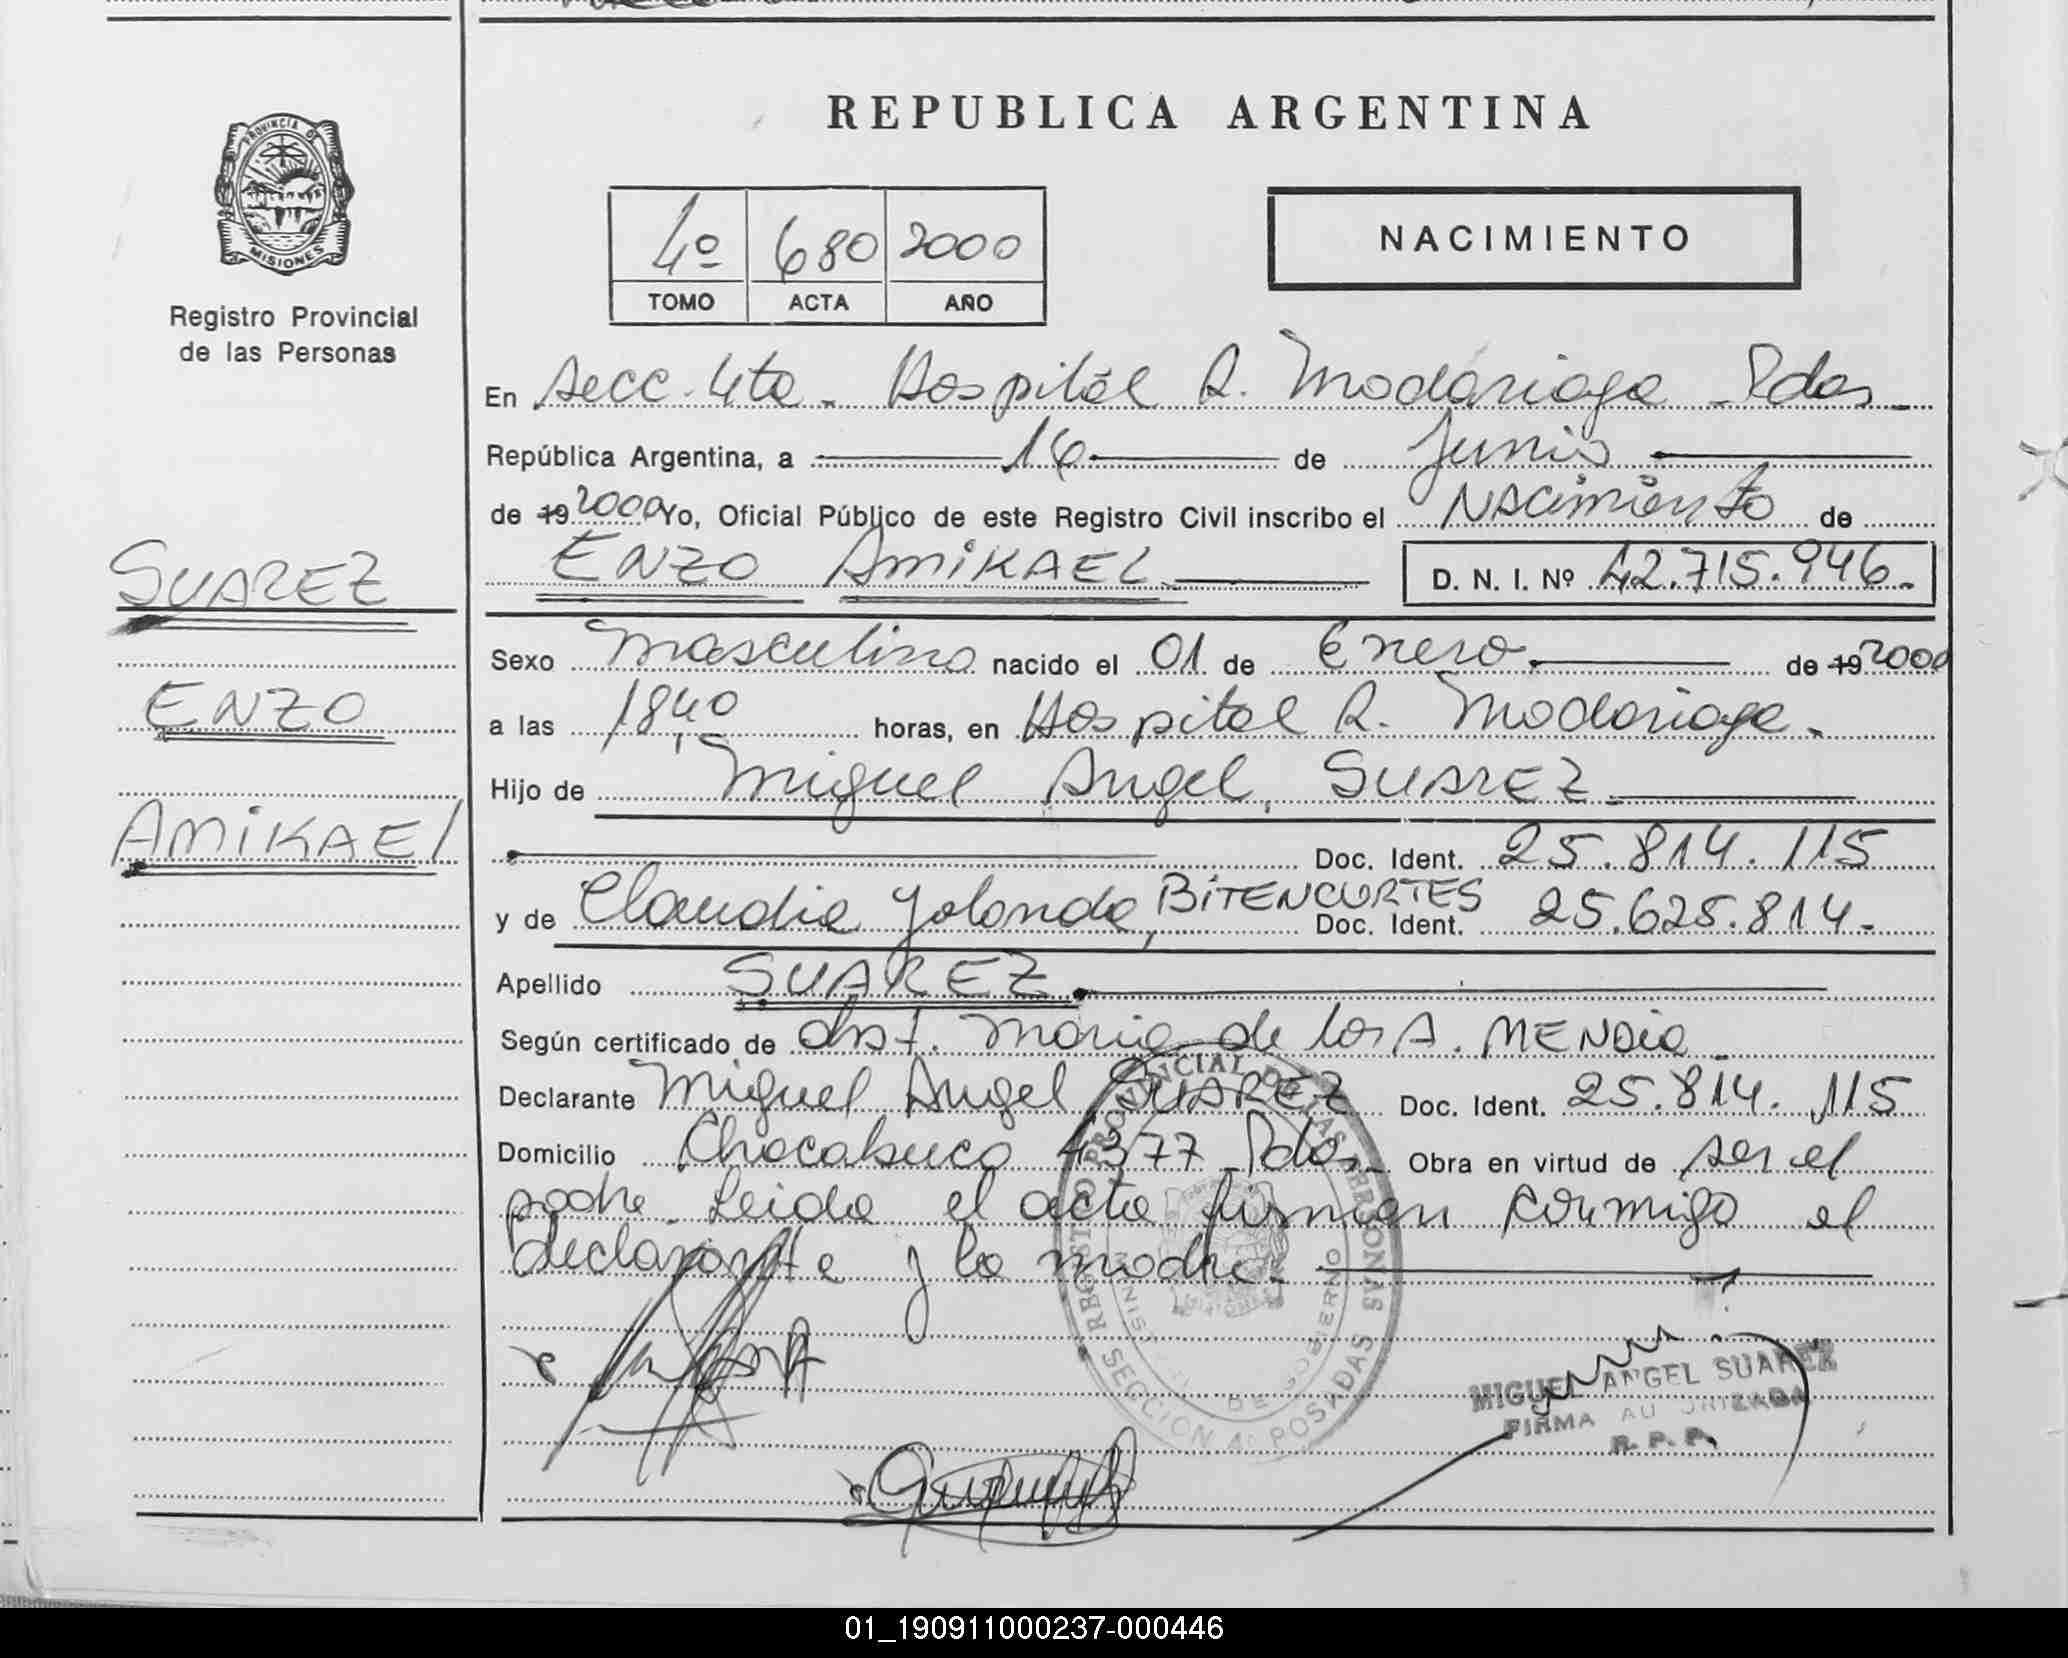 PROVINCIA DE
MISIONES
Registro Provincial
de las Personas
SUAREZ
ENZO
AMiKAEl
REPUBLICA ARGENTINA
4º 680 2000
TOMO ACTA AÑO
NACIMIENTO
En Secc. 4ta. Hospital R. Madariaga - Pdas -
República Argentina, a 16 de Junio
de 19 2000 Yo, Oficial Público de este Registro Civil inscribo el NACimiento de
ENZO AMiKAEL D. N. I. Nº 42.715.946.
Sexo Masculino nacido el 01 de Enero de 19 2000
a las 18,40 horas, en Hospital R. Madariaga.
Hijo de Miguel Angel, SUAREZ
Doc. Ident. 25.814.115
y de Claudia Yolanda, BiTENCURTES Doc. Ident. 25.625.814.
Apellido SUAREZ
Según certificado de obst. Maria de los A. MENDia
Declarante Miguel Angel SUAREZ Doc. Ident. 25.814.115
Domicilio Chacabuco 4377 - Pdas - Obra en virtud de ser el
padre. Leida el acta firman conmigo el
declarante y la madre.
REGISTRO PROVINCIAL DE LAS PERSONAS
DE GOBIERNO
SECCION 4a POSADAS
MIGUEL ANGEL SUAREZ
FIRMA AUTORIZADA
R. P. P.
01_190911000237-000446